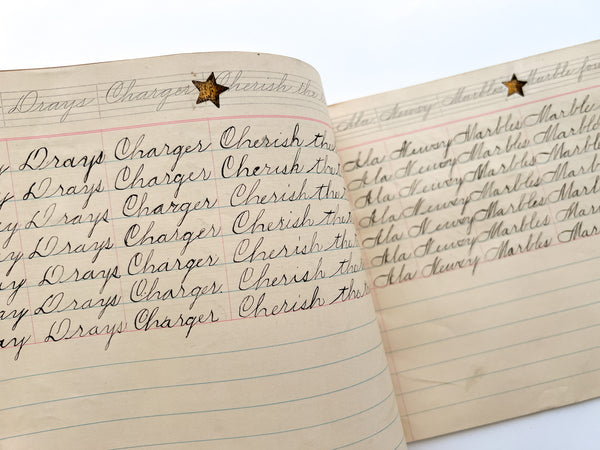 Drays Charger Cherish the
Drays Charger Cherish the
Drays Charger Cherish the
Drays Charger Cherish the
Drays Charger Cherish the
Drays Charger Cherish the
Drays Charger Cherish the
Drays Charger Cherish the
Ila Hewey Marbles Marble
Ila Hewey Marbles Marble
Ila Hewey Marbles Marble
Ila Hewey Marbles Marble
Ila Hewey Marbles Marble
Ila Hewey Marbles
Ila Hewey Marbles
Ila Hewey Marbles